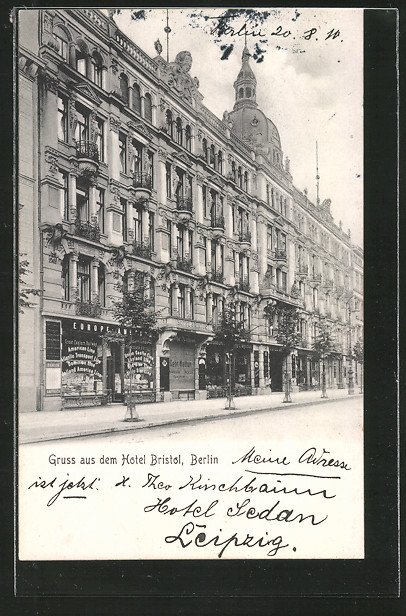 Berlin 20. 8. 10
EUROPE
American Line
Gruss aus dem Hotel Bristol, Berlin
Meine Adresse
ist jetzt: x. Theo Kirschbaum
Hotel Sedan
Leipzig.